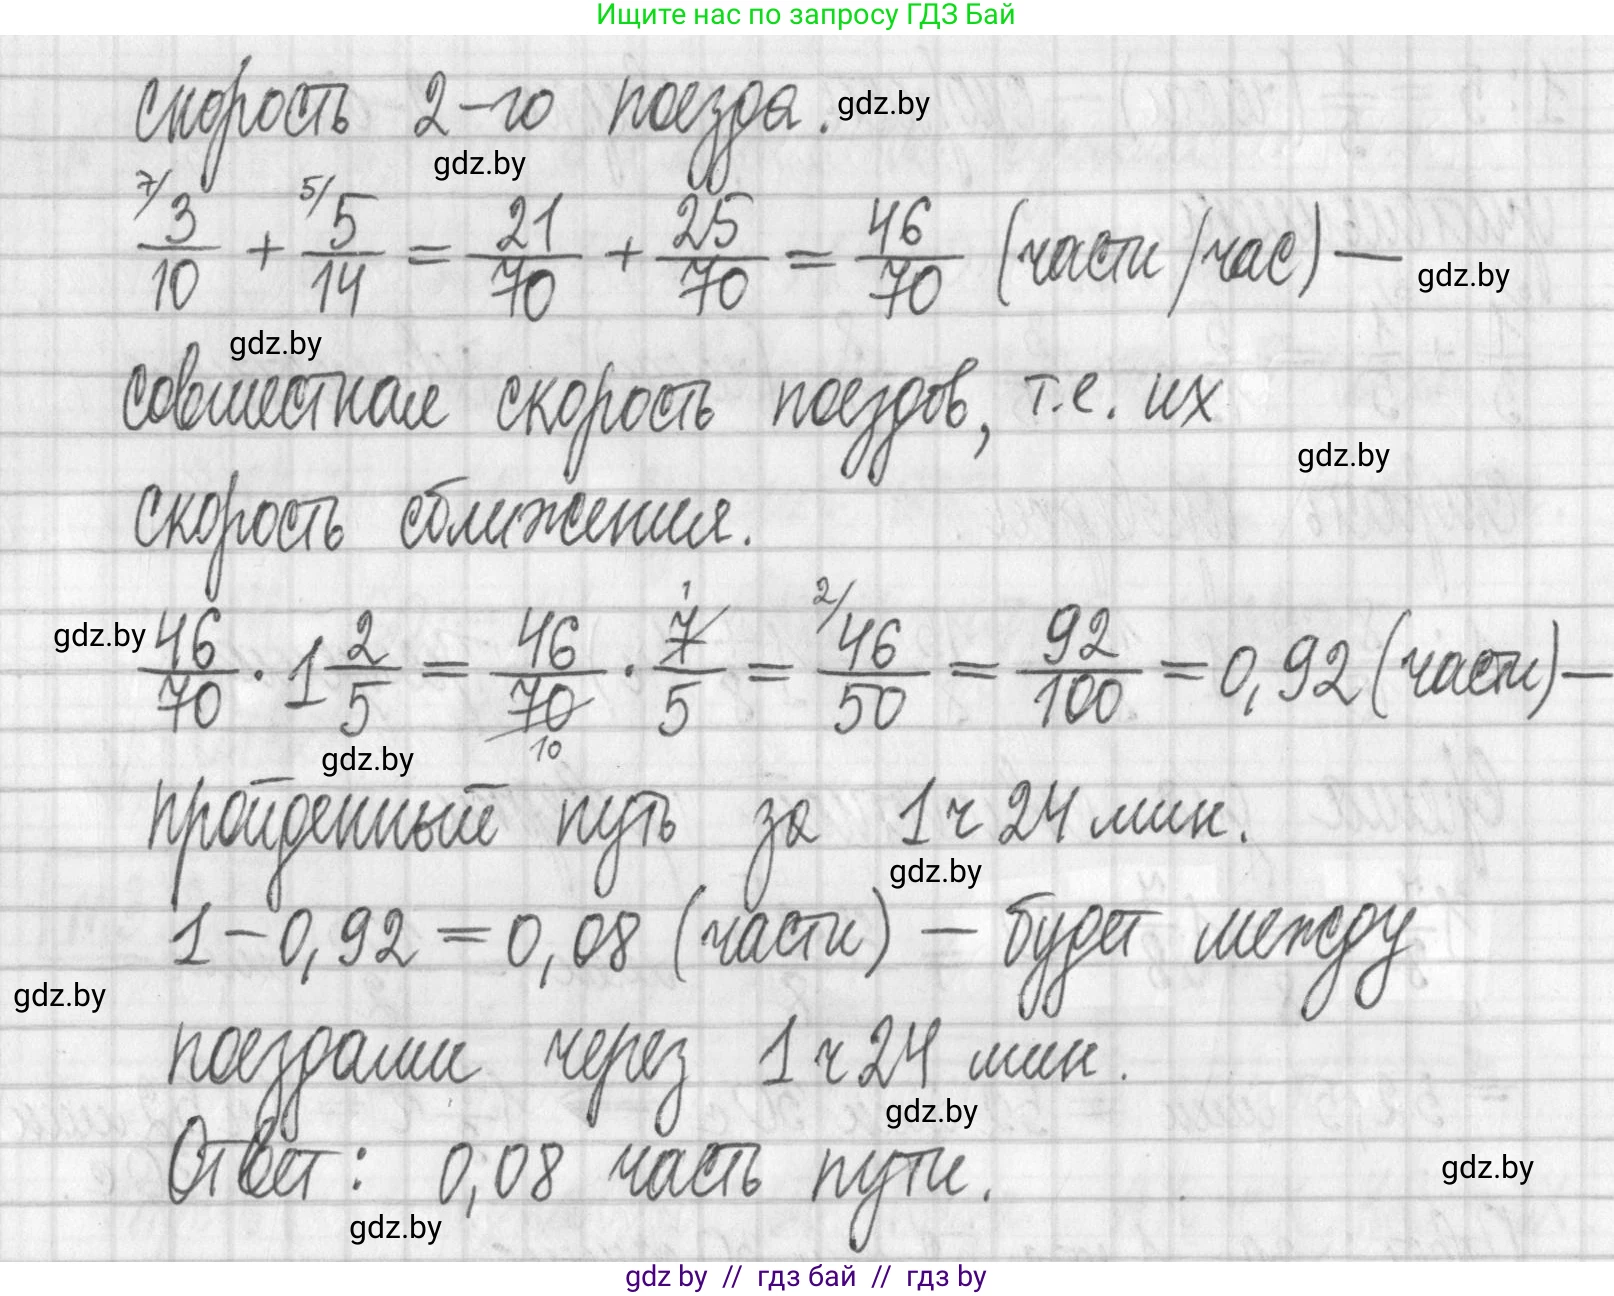 Ищите нас по запросу ГДЗ Бай
скорость 2-го поезда. gdz.by
gdz.by
7/3/10 + 5/5/14 = 21/70 + 25/70 = 46/70 (части/час) — gdz.by
gdz.by
совместная скорость поездов, т.е. их
gdz.by
скорость сближения.
gdz.by 46/70 · 1 2/5 = 46/70 10 · 7/5 1 = 2/46/50 = 92/100 = 0,92 (части) —
gdz.by
пройденный путь за 1 ч 24 мин.
gdz.by
1 - 0,92 = 0,08 (части) — будет между
gdz.by
поездами через 1 ч 24 мин.
gdz.by
Ответ: 0,08 часть пути.
gdz.by
gdz.by
gdz by // гдз бай // гдз by